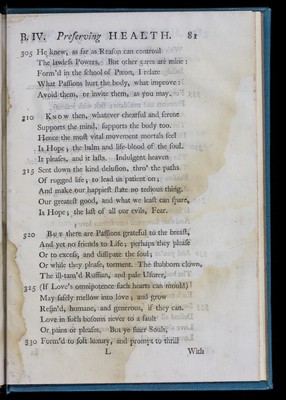 B. IV. Preserving HEALTH. 81
305 He knew, as far as Reason can controul
The lawless Powers. But other cares are mine:
Form'd in the school of Pæon, I relate
What Passions hurt the body, what improve:
Avoid them, or invite them, as you may.
310 KNOW then, whatever chearful and serene
Supports the mind, supports the body too.
Hence the most vital movement mortals feel
Is Hope; the balm and life-blood of the soul.
It pleases, and it lasts. Indulgent heaven
315 Sent down the kind delusion, thro' the paths
Of rugged life, to lead us patient on;
And make our happiest state no tedious thing.
Our greatest good, and what we least can spare,
Is Hope; the last of all our evils, Fear.
320 BUT there are Passions grateful to the breast,
And yet no friends to Life: perhaps they please
Or to excess, and dissipate the soul;
Or while they please, torment. The stubborn clown,
The ill-tam'd Ruffian, and pale Usurer,
325 (If Love's omnipotence such hearts can mould)
May safely mellow into love; and grow
Refin'd, humane, and generous, if they can.
Love in such bosoms never to a fault
Or pains or pleases. But ye finer Souls,
330 Form'd to soft luxury, and prompt to thrill
L With